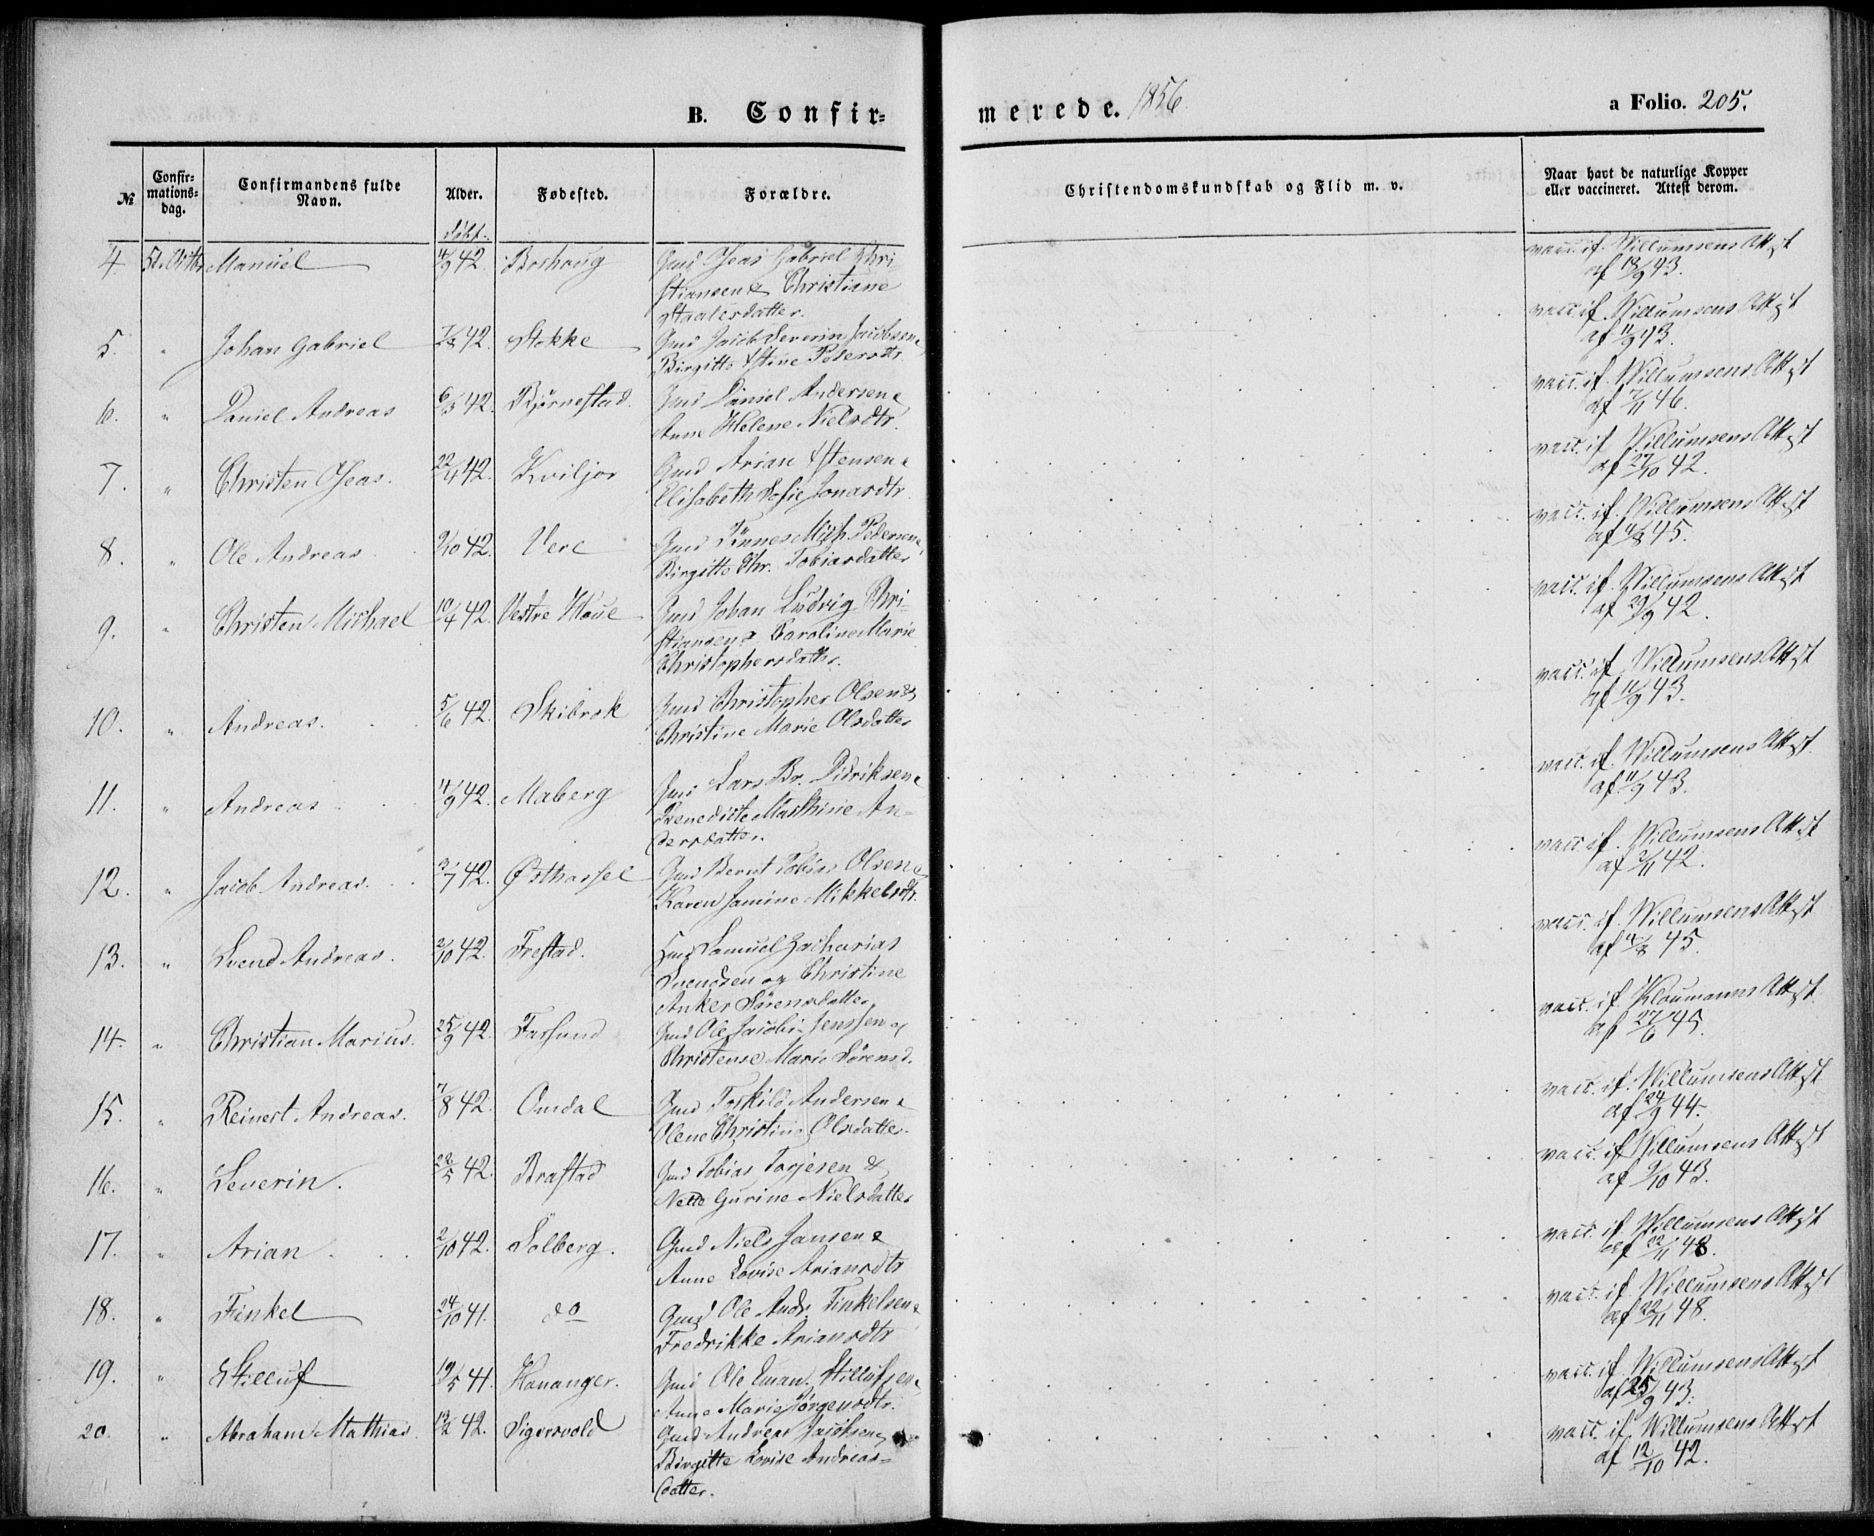 B. Confir-
merede. 1856.
a Folio. 205.
№
Confir-
mations-
dag.
Confirmandens fulde
Navn.
Alder.
Fødested.
Forældre.
Christendomskundskab og Flid m. v.
Naar havt de naturlige Kopper
eller vaccineret. Attest derom.
døbt.
4 Manuel 11/9 42. Boshoug Gmd Oseas Gabriel Chri-
stiansen & Christiane
Staalesdatter.
vacc. if. Willumsens Attest
af 13/9 43.
5. " Johan Gabriel 42. Stokke Gmd Jacob Severin Jacobsen &
Birgitte Stine Pedersdtr
vacc. if. Willumsens Attest
af 11/9 43.
6. " Daniel Andreas 6/3 42. Bjørnestad Gmd Daniel Andersen &
Anne Helene Nielsdtr.
vacc. if. Willumsens Attest
af 7/11 46.
7. " Christen Oseas. 22/4 42. Kviljor Gmd Arian Stensen &
Elisabeth Sofie Jonasdtr
vacc. if. Willumsens Attest
af 27/10 42.
8. " Ole Andreas 9/10 42. Vere Gmd Tønnes Mich. Pedersen &
Birgitte Chr. Tobiasdatter
vacc. if. Willumsens Attest
af 11/8 45.
9. " Christen Michael 10/4 42. Vestre Haue Gmd Johan Ludvig Chri-
stiansen & Caroline Marie
Christophersdatter.
vacc. if. Willumsens Attest
af 29/9 42.
10. " Andreas. 5/6 42. Skibrok Gmd Christopher Olsen &
Christine Marie Olsdatter
vacc. if. Willumsens Attest
af 11/9 43.
11. " Andreas 11/9 42. Maberg Gmd Lars Br. Didriksen &
Benedicte Marthine An-
dersdatter.
vacc. if. Willumsens Attest
af 11/9 43.
12. " Jacob Andreas. 3/7 42. Østhassel Gmd Bernt Tobias Olsen &
Karen Jamine Mikkelsdtr.
vacc. if. Willumsens Attest
af 2/11 42.
13. " Svend Andreas. 2/10 42. Frestad. Samuel Zacharias
Svendsen og Christine
Anker Sørensdatter
vacc. if. Willumsens Attest
af 11/8 45.
14. " Christian Marius. 25/9 42. Farsund Gmd Ole Jacobi Jenssen og
Christense Marie Sørensd.
vacc. if. Kloumanns Attest
af 27/6 45.
15. " Reinert Andreas. 7/8 42. Omdal Gmd Torkild Andersen &
Olene Christine Olsdatter.
vacc. if. Willumsens Attest
af 24/9 44.
16. " Severin. 22/5 42. Brastad Gmd Tobias Torjesen &
Nette Gurine Nielsdatter
vacc. if. Willumsens Attest
af 9/10 43.
17. " Arian 2/10 42. Sølberg. Gmd Niels Jansen &
Anne Lovise Ariansdtr
vacc. if. Willumsens Attest
af 22/11 48.
18. " Finkel 24/10 41. do Gmd Ole Andr. Finkelsen &
Fredrikke Ariansdtr
vacc. if. Willumsens Attest
af 22/11 48.
19. " Stilluf 19/5 41. Hananger. Gmd Ole Eman. Stillufsen &
Anne Marie Jørgensdtr.
vacc. if. Willumsens Attest
af 25/9 43.
20. " Abraham Mathias. 13/2 42. Sigersvold Gmd Andreas Jacobsen &
Birgitte Lovise Andreas-
datter.
vacc. if. Willumsens Attest
af 12/10 42.